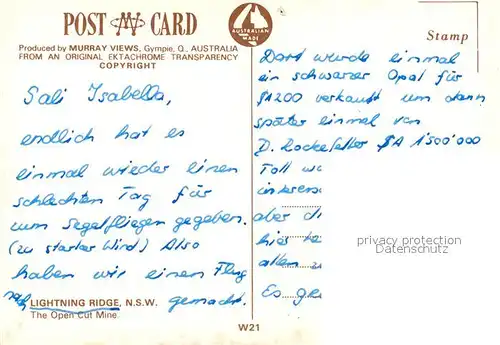 POST CARD
AUSTRALIAN MADE
Stamp
Produced by MURRAY VIEWS, Gympie, Q., AUSTRALIA
FROM AN ORIGINAL EKTACHROME TRANSPARENCY
COPYRIGHT
Sali Isabella,
endlich hat es
einmal wieder einen
schlechten Tag für
zum Segelfliegen gegeben.
(zu starker Wind) Also
haben wir einen Flug
nach LIGHTNING RIDGE, N.S.W. gemacht.
The Open Cut Mine.
W21
Dort wurde einmal
ein schwarzer Opal für
$A200 verkauft um dann
später einmal von
D. Rockefeller $A 1'500'000
Toll
interess
aber di
hier
allem
Es
privacy protection
Datenschutz